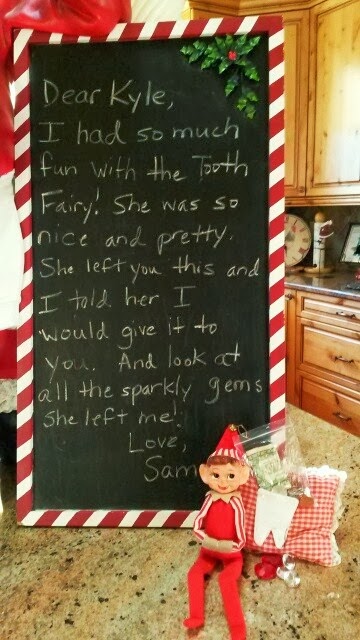 Dear Kyle,
I had so much
fun with the Tooth
Fairy! She was so
nice and pretty.
She left you this and
I told her I
would give it to
you. And look at
all the sparkly gems
she left me!
Love,
Sam